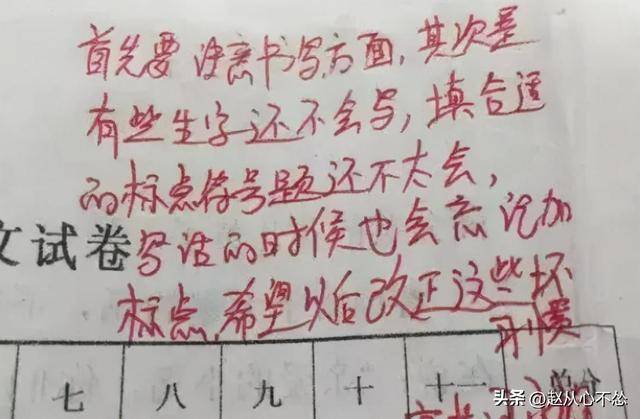 首先要注意书写方面,其次是
有些生字还不会写,填合适
的标点符号题还不太会,
文试卷
写话的时候也会忘记加
标点,希望以后改正这些坏
习惯
七 八 九 十 十一 总分
头条 @赵从心不怂